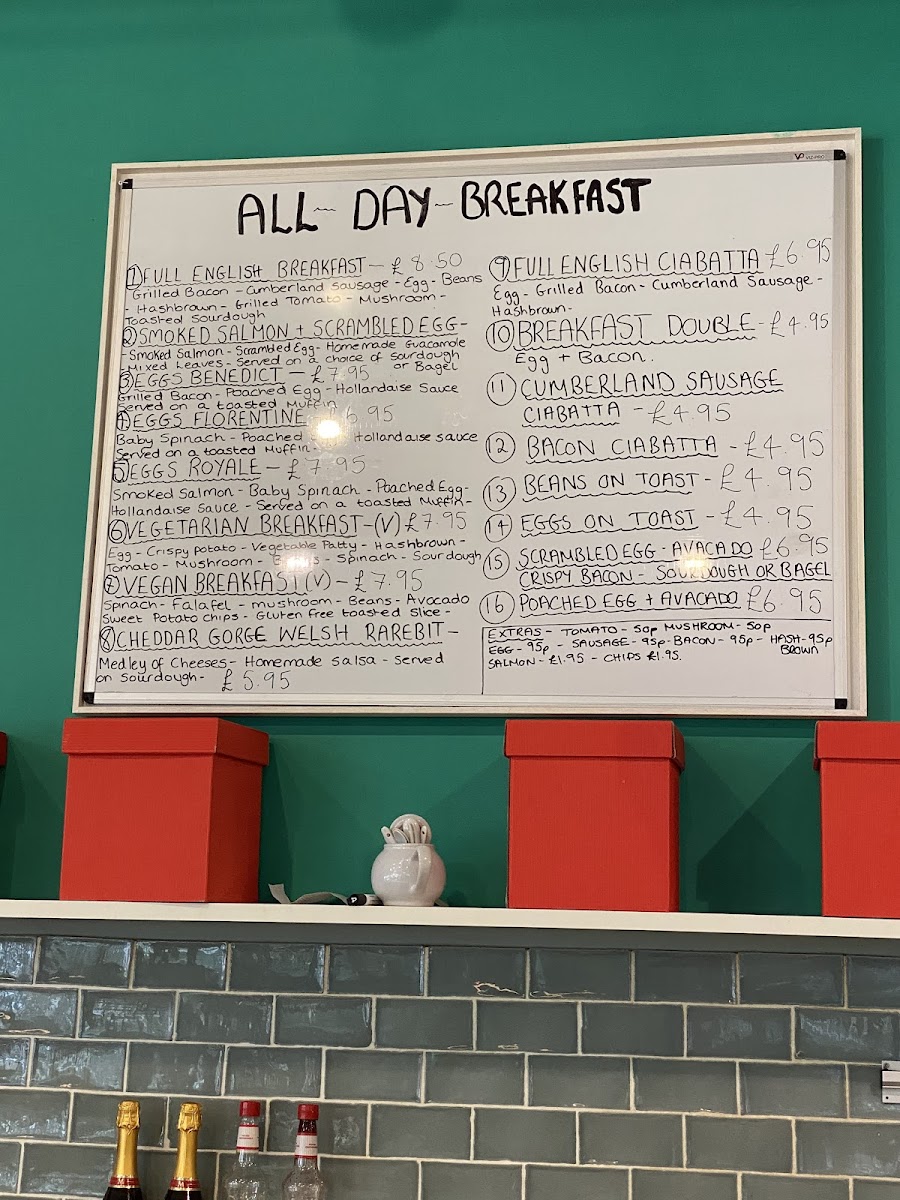 ALL DAY BREAKFAST
① FULL ENGLISH BREAKFAST - £8.50
Grilled Bacon - Cumberland Sausage - Egg - Beans
- Hashbrown - Grilled Tomato - Mushroom -
Toasted Sourdough
② SMOKED SALMON + SCRAMBLED EGG -
- Smoked Salmon - Scrambled Egg - Homemade Guacamole
- Mixed Leaves - Served on a choice of Sourdough
or Bagel
③ EGGS BENEDICT - £7.95
Grilled Bacon - Poached Egg - Hollandaise Sauce
Served on a toasted Muffin
④ EGGS FLORENTINE 6.95
Baby Spinach - Poached Hollandaise sauce
Served on a toasted Muffin -
⑤ EGGS ROYALE - £7.95
Smoked Salmon - Baby Spinach - Poached Egg -
Hollandaise Sauce - Served on a toasted Muffin -
⑥ VEGETARIAN BREAKFAST - (V) £7.95
Egg - Crispy potato - Vegetable Patty - Hashbrown -
Tomato - Mushroom - Beans - Spinach - Sourdough
⑦ VEGAN BREAKFAST (V) - £7.95
Spinach - Falafel - mushroom - Beans - Avocado
Sweet Potato chips - Gluten free toasted Slice -
⑧ CHEDDAR GORGE WELSH RAREBIT -
Medley of Cheeses - Homemade Salsa - Served
on Sourdough - £5.95
⑨ FULL ENGLISH CIABATTA £6.95
Egg - Grilled Bacon - Cumberland Sausage -
Hashbrown -
⑩ BREAKFAST DOUBLE - £4.95
Egg + Bacon.
⑪ CUMBERLAND SAUSAGE
CIABATTA - £4.95
⑫ BACON CIABATTA - £4.95
⑬ BEANS ON TOAST - £4.95
⑭ EGGS ON TOAST - £4.95
⑮ SCRAMBLED EGG - AVACADO £6.95
CRISPY BACON - SOURDOUGH OR BAGEL
⑯ POACHED EGG + AVACADO £6.95
EXTRAS - TOMATO - 50p MUSHROOM - 50p
EGG - 95p - SAUSAGE - 95p - BACON - 95p - HASH - 95p
BROWN
SALMON - £1.95 - CHIPS £1.95.